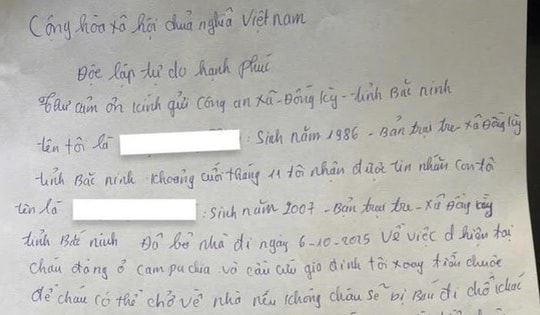 Cộng hòa xã hội chủa nghĩa Việt nam
Độc lập tự do hạnh phúc
Thư cảm ơn kính gửi công an xã - Đồng Kỳ - tỉnh Bắc ninh
tên tôi là : Sinh năm 1986 - Bản trại tre - xã Đồng Kỳ
tỉnh Bắc ninh khoảng cuối tháng 11 tôi nhận được tin nhắn con tô
tên là : Sinh năm 2007 - Bản trại tre - xã Đồng Kỳ
tỉnh Bắc ninh Đã bỏ nhà đi ngày 6-10-2025 Về việc hiện tại
cháu đang ở campuchia và cầu cứu gia đình tôi xoay tiền chuộc
để cháu có thể chở về nhà nếu không cháu sẽ bị Bán đi chỗ khác